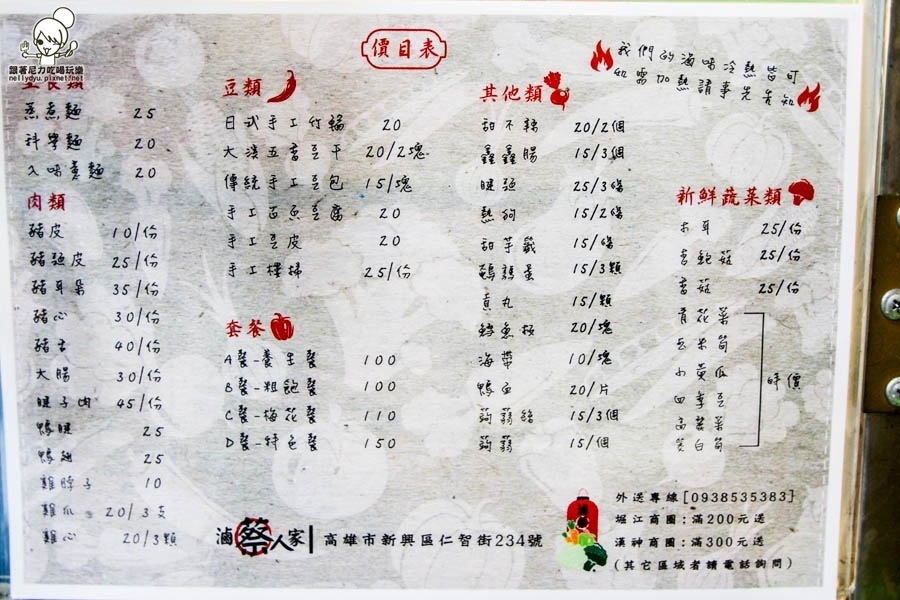 跟著尼力吃喝玩樂
nellydyu.pixnet.net
價目表
我們的滷味冷熱皆可
如需加熱請事先告知
主食類
蒸煮麵 25
科學麵 20
入味煮麵 20
肉類
豬皮 10/份
豬頭皮 25/份
豬耳朵 35/份
豬心 30/份
豬舌 40/份
大腸 30/份
腱子肉 45/份
鴨腱 25
鴨翅 25
雞脖子 10
雞爪 20/3支
雞心 20/3顆
豆類
日式手工竹輪 20
大溪五香豆干 20/2塊
傳統手工豆包 15/塊
手工百頁豆腐 20
手工豆皮 20
手工樸捅 25/份
套餐
A餐-養生餐 100
B餐-粗飽餐 100
C餐-梅花餐 110
D餐-特色餐 150
其他類
甜不辣 20/2個
鑫鑫腸 15/3個
腱頭 25/3條
熱狗 15/2條
甜芋籤 15/條
鵪鶉蛋 15/3顆
貢丸 15/顆
鱈魚板 20/塊
海帶 10/塊
鴨血 20/片
蒟蒻絲 15/3個
蒟蒻 15/個
新鮮蔬菜類
木耳 25/份
杏鮑菇 25/份
香菇 25/份
青花菜
玉米筍
小黃瓜
四季豆
高麗菜
茭白筍
時價
滷蔡人家 高雄市新興區仁智街234號
外送專線[0938535383]
堀江商圈:滿200元送
漢神商圈:滿300元送
(其它區域者請電話詢問)